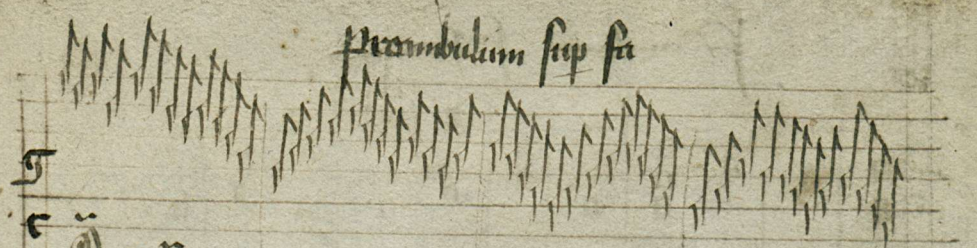 Preambulum sup fa
g
c